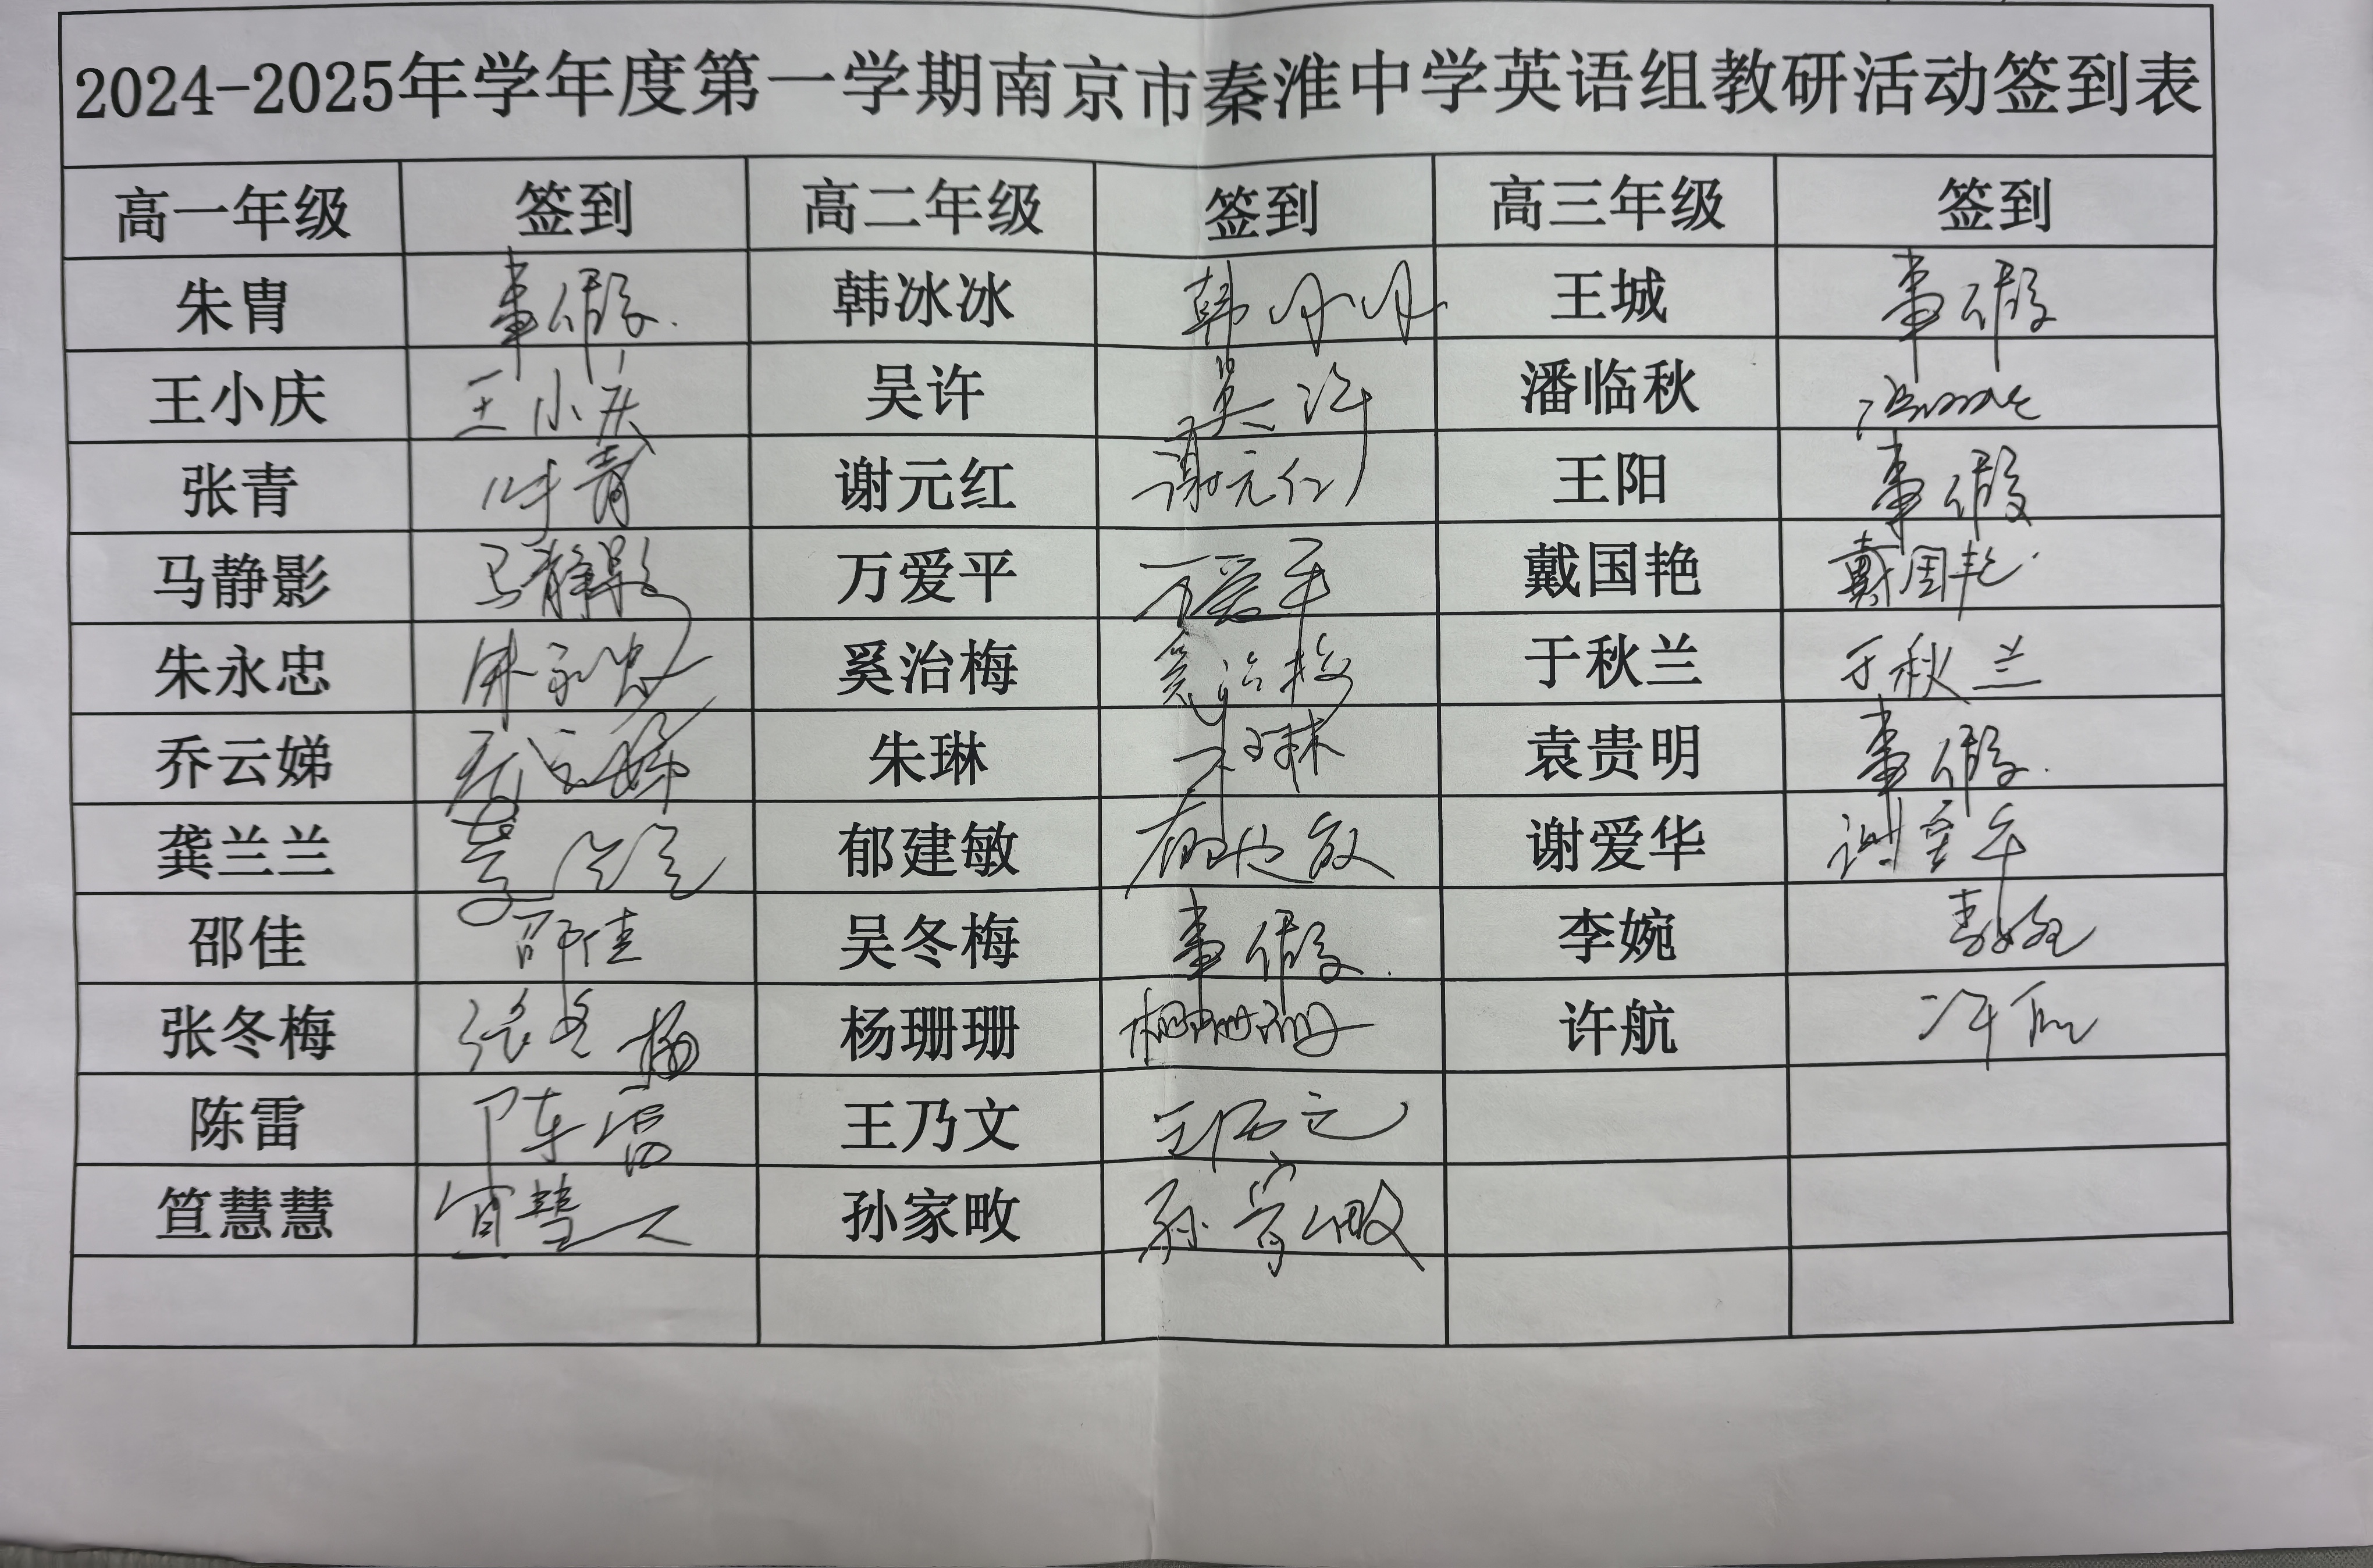 2024-2025年学年度第一学期南京市秦淮中学英语组教研活动签到表
高一年级 签到 高二年级 签到 高三年级 签到
朱胄 事假. 韩冰冰 韩冰冰 王城 事假
王小庆 王小庆 吴许 吴许 潘临秋 潘临秋
张青 张青 谢元红 谢元红 王阳 事假
马静影 马静影 万爱平 万爱平 戴国艳 戴国艳
朱永忠 朱永忠 奚治梅 奚治梅 于秋兰 于秋兰
乔云娣 乔云娣 朱琳 朱琳 袁贵明 事假.
龚兰兰 龚兰兰 郁建敏 郁建敏 谢爱华 谢爱华
邵佳 邵佳 吴冬梅 事假. 李婉 李婉
张冬梅 张冬梅 杨珊珊 杨珊珊 许航 许航
陈雷 陈雷 王乃文 王乃文
笪慧慧 笪慧慧 孙家畋 孙家畋